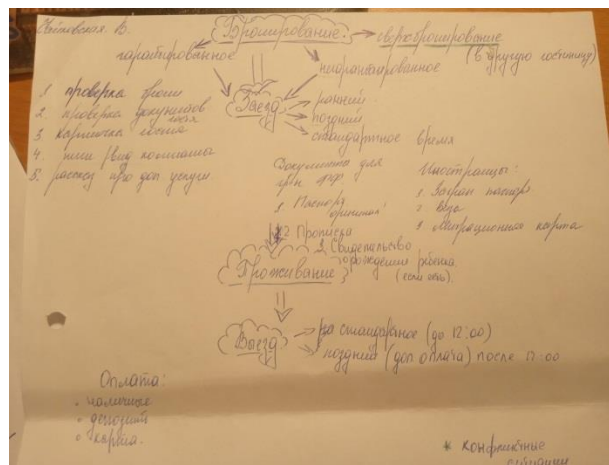 Бронирование → сверхбронирование
(в другую гостиницу)
гарантированное
негарантированное
Заезд
ранний
поздний
стандартное время
1. проверка брони
2. проверка документов гостя
3. карточка гостя
4.
5. рассказ про доп услуги
Документы для
1. Паспорт
2 Прописка
3. Свидетельство
рождения ребенка
(если есть).
Иностранцы:
1. Загран паспорт
2. Виза
3. Миграционная карта
Проживание
Выезд
стандартное (до 12:00)
поздний (доп оплата) после 12:00
Оплата:
• наличные
• депозит
• карта.
* конфликтные
ситуации